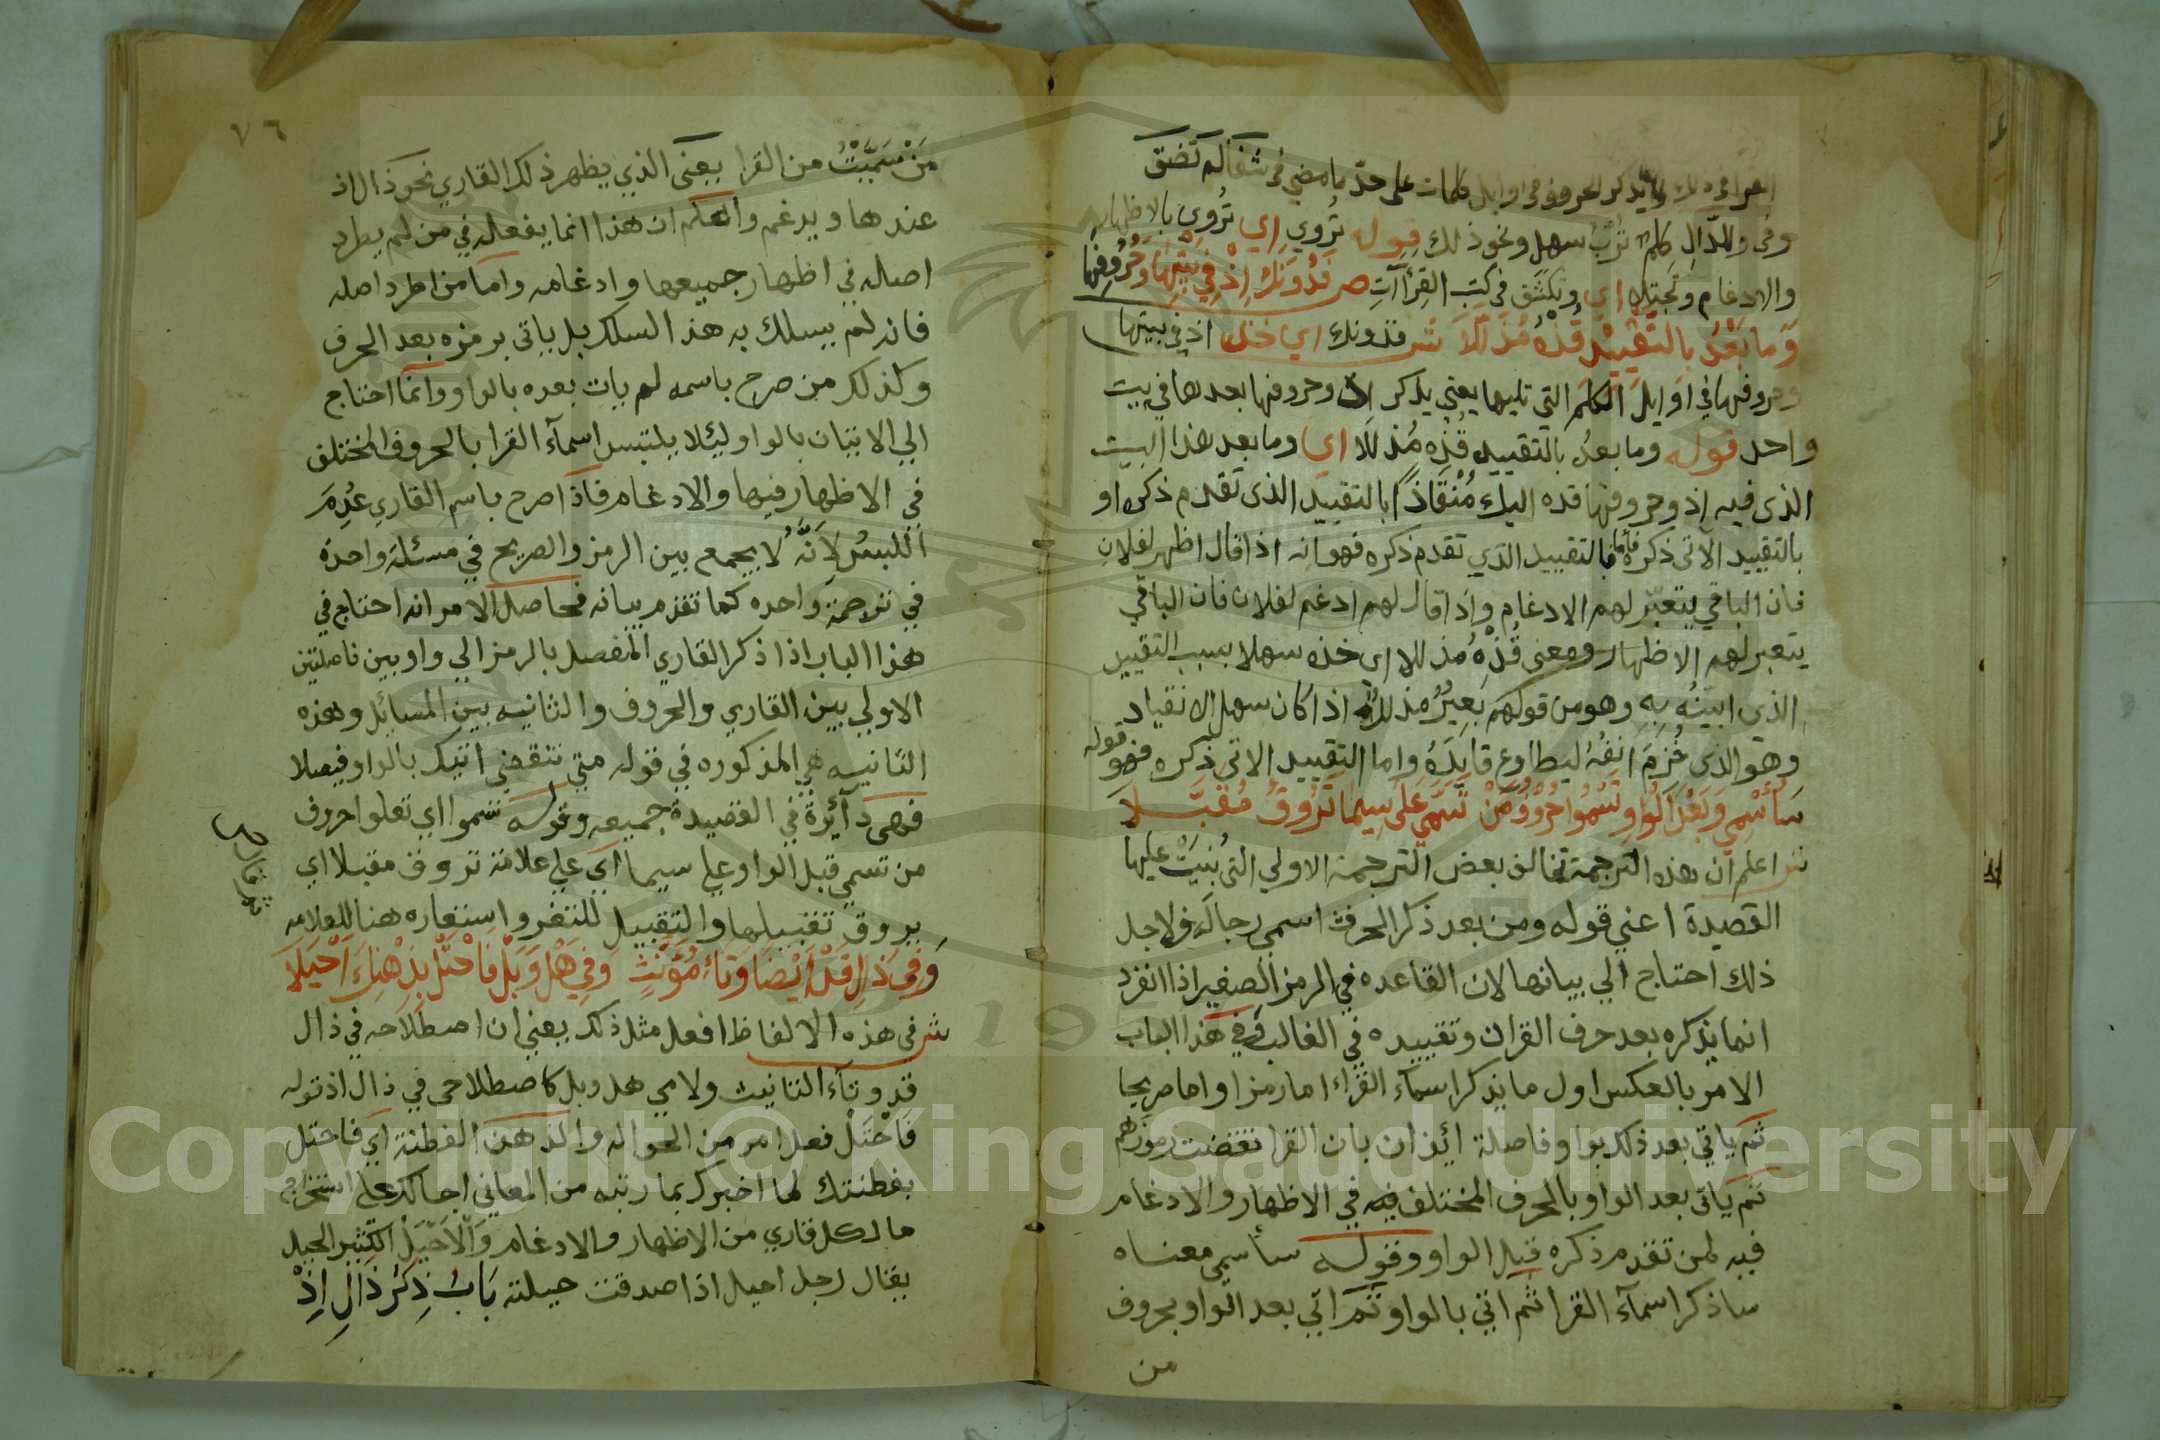 القراء في ذلك ويذكر الحروف في اوايل كلمات على حدّ ما مضى في شفا لم تضق
وفي وللدّالِ كلمٌ تُرْبُ سهل ونحو ذلك قوله تُروي اي تُروى بالاظهار
والادغام وتجتلا اي وتكشف في كتب القرآآت ص فَدُونَكَ إذْ في بَيْتِهَا وَحُرُوفِهَا
وَمَا بَعْدُ بِالتَّقْيِيْدِ قُدْهُ مُذَلَّلاَ ش فدونك اي خذ اذ في بيتها
وحروفها في اوايل الكلم التي تليها يعني يذكر اذ وحروفها بعدها في بيت
واحد قوله وما بعدُ بالتقييد قُدْه مُذللا اي وما بعد هذا البيت
الذى فيه اذ وحروفها قده اليك مُنْقَاذًا بالتقييد الذى تقدم ذكره او
بالتقييد الآتى ذكره فأما بالتقييد الذي تقدم ذكره فهو انه اذا قال اظهر لفلان
فان الباقي يتعبّر لهم الادغام واذا قال لهم ادغم لفلان فان الباقي
يتعبر لهم الاظهار ومعنى قُدْهُ مُذللا اى خذه سهلا بسبب التقييد
الذي ابيّنُه بِهِ وهو من قولهم بَعِيْرٌ مذللٌ اذا كان سهل الانقياد
وهو الذى خُزِمَ انفُهُ ليطاوع قايِدَهُ واما التقييد الاتى ذكره فهو قوله
سَأُسْمِي وَبَعْدَ الْوَاوِ تَسْمُوا حُرُوْفُ مَنْ تَسَمَّى عَلَى سِيمَا تَرُوقُ مُقَبَّلاَ
ش اعلم ان هذه الترجمة تخالف بعض الترجمة الاولى التى بُنِيَتْ عليها
القصيدة اعني قوله ومن بعد ذكر الحرف اسمى رجاله فلاجل
ذلك احتاج الي بيانها لان القاعده في الرمز الصغير اذا انفرد
انما يذكره بعد حرف القران وتقييده في الغالب وفي هذا الباب
الامر بالعكس اول ما يذكر اسمآء القرّاء اما رمزا واما صريحا
ثم ياتي بعد ذلك بواو فاصلة ايذان بان القرا تقضت رموزهم
ثم ياتى بعد الواو بالحرف المختلف فيه في الاظهار والادغام
فيه لمن تقدم ذكره قبل الواو وقوله سأسمي معناه
ساذكر اسمآء القرا ثم اتي بالواو ثم اتي بعد الواو بحروف
من
٧٦
مَنْ سَمَّيْتُ من القرا يعنى الذي يظهر ذلك القاري نحو ذال اذ
عندها ويدغم واعلم ان هذا انما يفعله في من لم يطرد
اصله في اظهار جميعها وادغامه واما من اطرد اصله
فانه لم يسلك به هذ المسلك بل ياتى برمزه بعد الحرف
وكذلك من صرح باسمه لم يات بعده بالواو وانما احتاج
الي الاتيان بالواو ليئلا يلتبس اسمآء القرا بالحروف المختلف
في الاظهار فيها والادغام فاذا صرح باسم القاري عُدِمَ
اللبسُ لأنّه لا يجمع بين الرمز والصريح في مسئلة واحدة
في ترجمة واحده كما تقدم بيانه فحاصل الامر انه احتاج في
هذا الباب اذا ذكر القاري المفصل بالرمز الي واوين فاصلتين
الاولي بين القاري والحروف والثانيه بين المسايل وهذه
الثانيه هي المذكوره في قوله متى تنقضي اتيك بالواو فيصلا
فهى دآئرة في القصيدة جميعه وقوله تسموا اي تعلوا حروف
من تسمي قبل الواو علي سيما اي علي علامة تروق مقبلا اي
يروق تقبيلها والتقبيل للثغر واستعاره هنا للعلامه
وَفِي دَالِ قَدْ أَيْضًا وَتَاءِ مُؤَنَّثٍ وَفِي هَلْ وَبَلْ فَاحْتَلْ بِذِهْنِكَ أَحْيَلاَ
ش في هذه الالفاظ افعل مثل ذلك يعني ان اصطلاحه في ذال
قد وتآء التانيث ولامي هل وبل كاصطلاحى في ذال اذ قوله
فَاحْتَلْ فعل امر من الحواله والذهن الفطنة اي فاحتل
بفطنتك لما اخبرك بما رتبه من المعاني احالك على استخراج
ما لكل قاري من الاظهار والادغام وَالْأَحْيَلُ الكثير الحيل
يقال رجل احيل اذا صدقت حيلته بَابُ ذِكْرِ ذَالِ إِذْ
Copyright © King Saud University
19